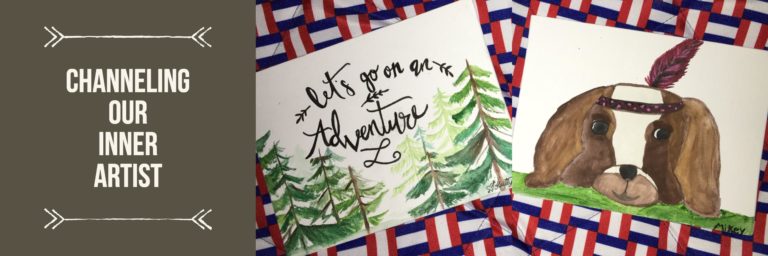 CHANNELING
OUR
INNER
ARTIST
let's go on an
Adventure
Mikey